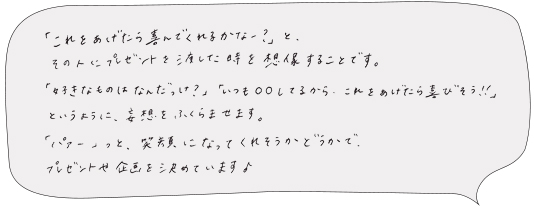 「これをあげたら喜んでくれるかなー?」と、
その人にプレゼントを渡した時を想像することです。
「好きなものはなんだっけ?」「いつも〇〇してるから、これをあげたら喜びそう!!」
というように、妄想をふくらませます。
「パァー」っと、笑顔になってくれそうかどうかで、
プレゼントや企画を決めています♪